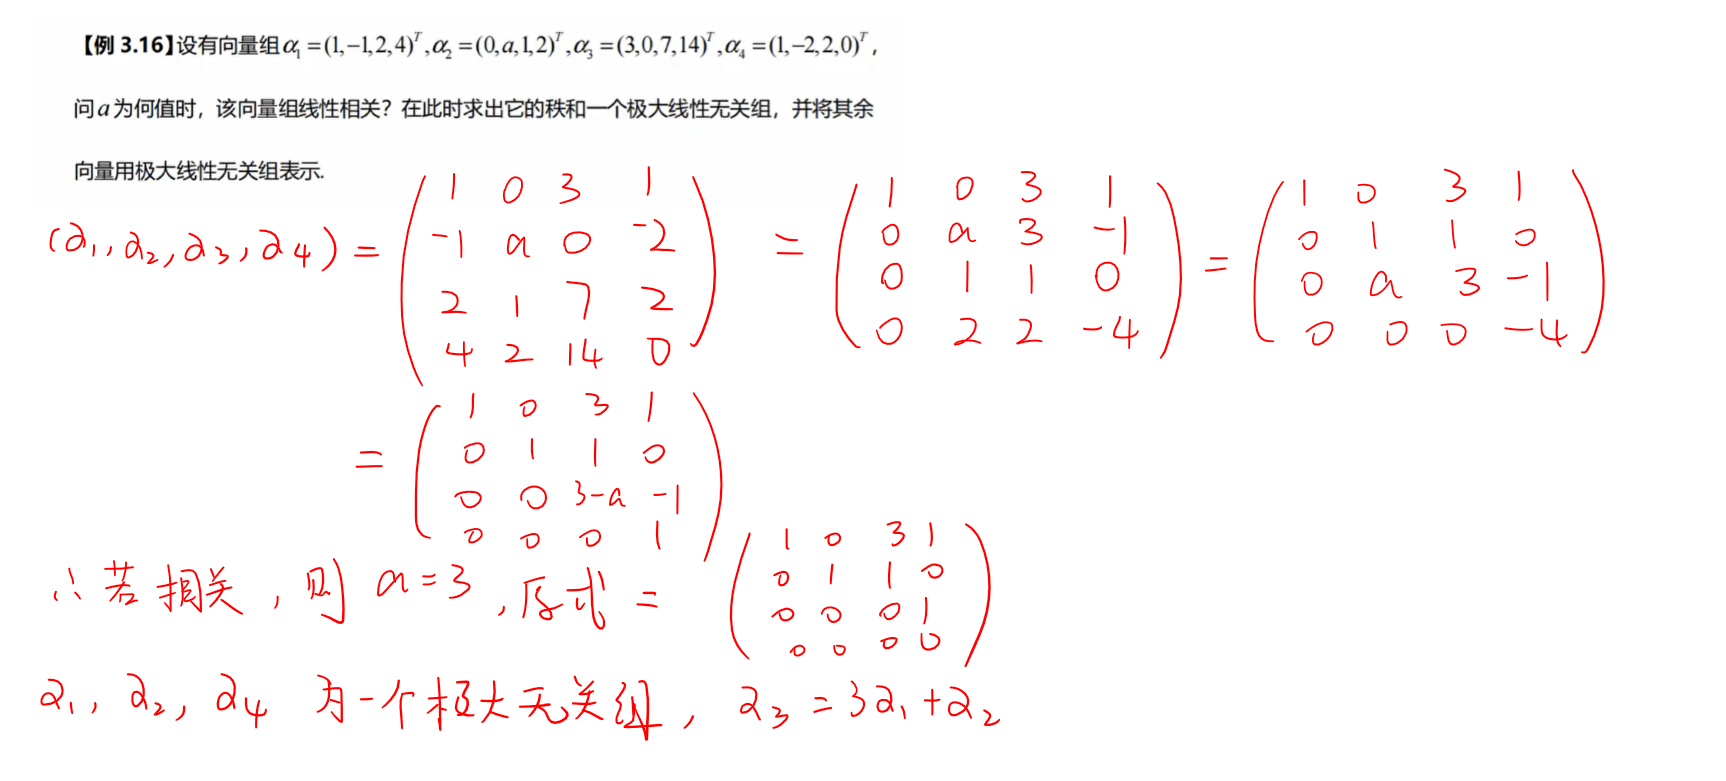 【例 3.16】设有向量组α₁=(1,−1,2,4)ᵀ,α₂=(0,a,1,2)ᵀ,α₃=(3,0,7,14)ᵀ,α₄=(1,−2,2,0)ᵀ,
问a为何值时，该向量组线性相关？在此时求出它的秩和一个极大线性无关组，并将其余
向量用极大线性无关组表示.
1 0 3 1
1 0 3 1
1 0 3 1
(α₁,α₂,α₃,α₄) = -1 a 0 -2 = 0 a 3 -1 = 0 1 1 0
2 1 7 2
0 1 1 0
0 a 3 -1
4 2 14 0
0 2 2 -4
0 0 0 -4
1 0 3 1
= 0 1 1 0
0 0 3-a -1
0 0 0 1
∴若相关，则 a=3，原式 =
1 0 3 1
0 1 1 0
0 0 0 1
0 0 0 0
α₁, α₂, α₄ 为一个极大无关组, α₃=3α₁+α₂